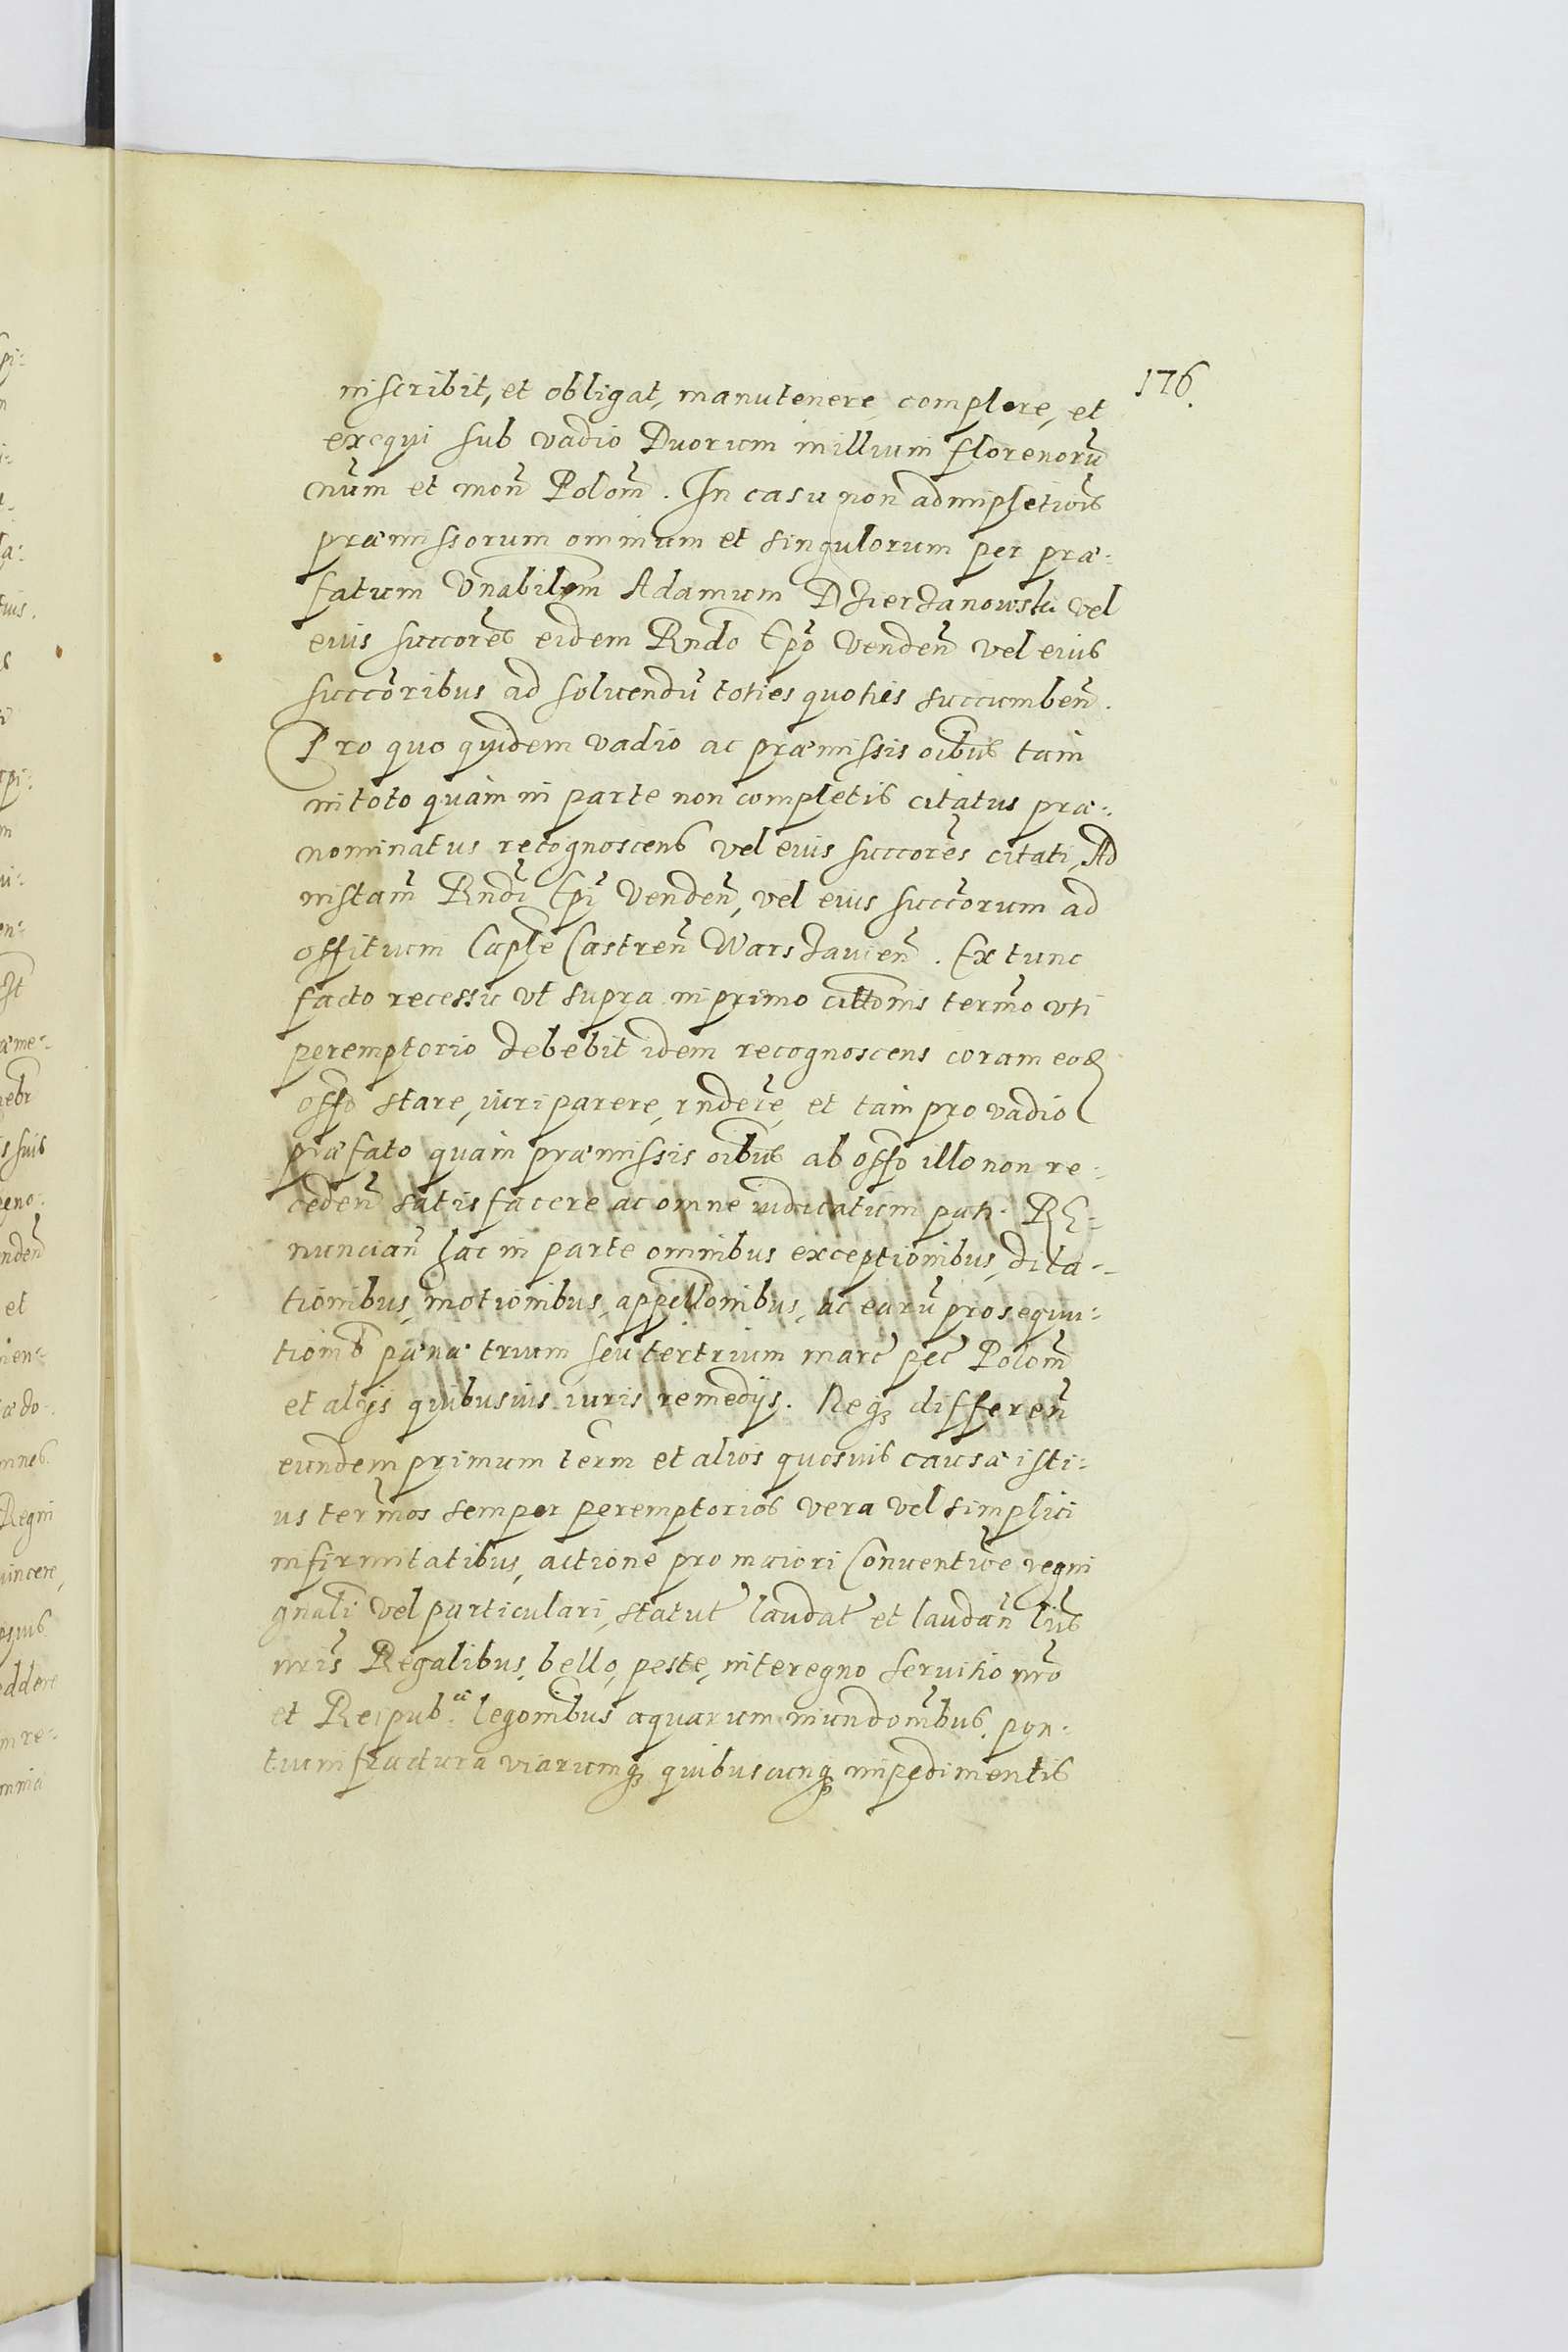 176.
inscribit, et obligat, manutenere complere, et
exequi sub vadio Duorum millium florenorũ
nũm et moñ Polom̃. In casu non adimpletiõis
præmissorum omnium et singulorum per præ-
fatum Vnabilem Adamum Dzierzanowski vel
eius succorẽs eidem Rndo Epõ Vendeñ vel eius
succõribus ad soluendũ toties quoties succumbeñ.
Pro quo quidem vadio ac præmissis oibus tam
in toto quàm in parte non completis citatus præ-
nominatus recognoscens vel eius succorẽs citati, Ad
instam̃ Rndĩ Epĩ Vendeñ, vel eius succõrum ad
offitium Caple Castreñ Warszavieñ. Ex tunc
facto recessu vt supra in primo cittonis term̃o vti
peremptorio debebit idem recognoscens coram eod
offo stare, iuri parere, rnderẽ, et tam pro vadio
præfato quàm præmissis oibus ab offo illo non re-
cedeñ satisfacere ac omne iudicatum pati. RE-
nuncian̄ hac in parte omnibus exceptionibus, dila-
tionibus, motionibus, appellonibus, ac earũ prosequu-
tionib pæna trium seu tertrium marc pec Polom̃
et alijs quibusuis iuris remedijs. Neq differeñ
eundem primum term̃ et alios quosuis causæ isti-
us term̃os semper peremptorios vera vel simplici
infirmitatibus, actione pro maiori Conuentiõe regni
gnali vel particulari, statut laudat et laudañ lris
nris Regalibus, bello, peste, interegno seruitio nrõ
et Reipub.cæ legonibus aquarum inundonibus, pon-
tium fractura viarumq quibuscunq impedimentis